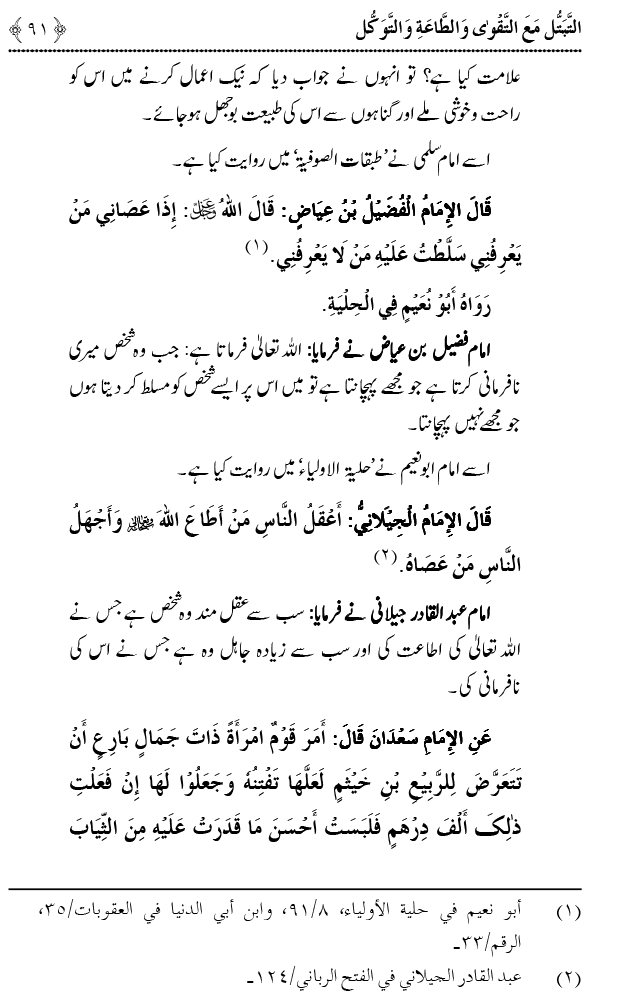 التَّبَتُّل مَعَ التَّقْوٰى وَالطَّاعَةِ وَالتَّوَكُّل ﴿٩١﴾
علامت کیا ہے؟ تو انہوں نے جواب دیا کہ نیک اعمال کرنے میں اس کو
راحت و خوشی ملے اور گناہوں سے اس کی طبیعت بوجھل ہوجائے۔
اسے امام سلمی نے ’طبقات الصوفیۃ‘ میں روایت کیا ہے۔
قَالَ الإِمَامُ الْفُضَيْلُ بْنُ عِيَاضٍ: قَالَ اللهُ عزوجل: إِذَا عَصَانِي مَنْ
يَعْرِفُنِي سَلَّطْتُ عَلَيْهِ مَنْ لَا يَعْرِفُنِي.(١)
رَوَاهُ أَبُوْ نُعَيْمٍ فِي الْحِلْيَةِ.
امام فضیل بن عیاض نے فرمایا: اللہ تعالیٰ فرماتا ہے: جب وہ شخص میری
نافرمانی کرتا ہے جو مجھے پہچانتا ہے تو میں اس پر ایسے شخص کو مسلط کر دیتا ہوں
جو مجھے نہیں پہچانتا۔
اسے امام ابونعیم نے ’حلیۃ الاولیاء‘ میں روایت کیا ہے۔
قَالَ الإِمَامُ الْجِيْلَانِيُّ: أَعْقَلُ النَّاسِ مَنْ أَطَاعَ اللهَ وَأَجْهَلُ
النَّاسِ مَنْ عَصَاهُ.(٢)
امام عبد القادر جیلانی نے فرمایا: سب سے عقل مند وہ شخص ہے جس نے
اللہ تعالیٰ کی اطاعت کی اور سب سے زیادہ جاہل وہ ہے جس نے اس کی
نافرمانی کی۔
عَنِ الإِمَامِ سَعْدَانَ قَالَ: أَمَرَ قَوْمٌ امْرَأَةً ذَاتَ جَمَالٍ بَارِعٍ أَنْ
تَتَعَرَّضَ لِلرَّبِيْعِ بْنِ خَيْثَمٍ لَعَلَّهَا تَفْتِنُهٗ وَجَعَلُوْا لَهَا إِنْ فَعَلْتِ
ذٰلِکَ أَلْفَ دِرْهَمٍ فَلَبَسَتْ أَحْسَنَ مَا قَدَرَتْ عَلَيْهِ مِنَ الثِّيَابَ
(١) أبو نعيم في حلية الأولياء، ٨/٩١، وابن أبي الدنيا في العقوبات/٣٥،
الرقم/٣٣۔
(٢) عبد القادر الجيلاني في الفتح الرباني/١٢٤۔